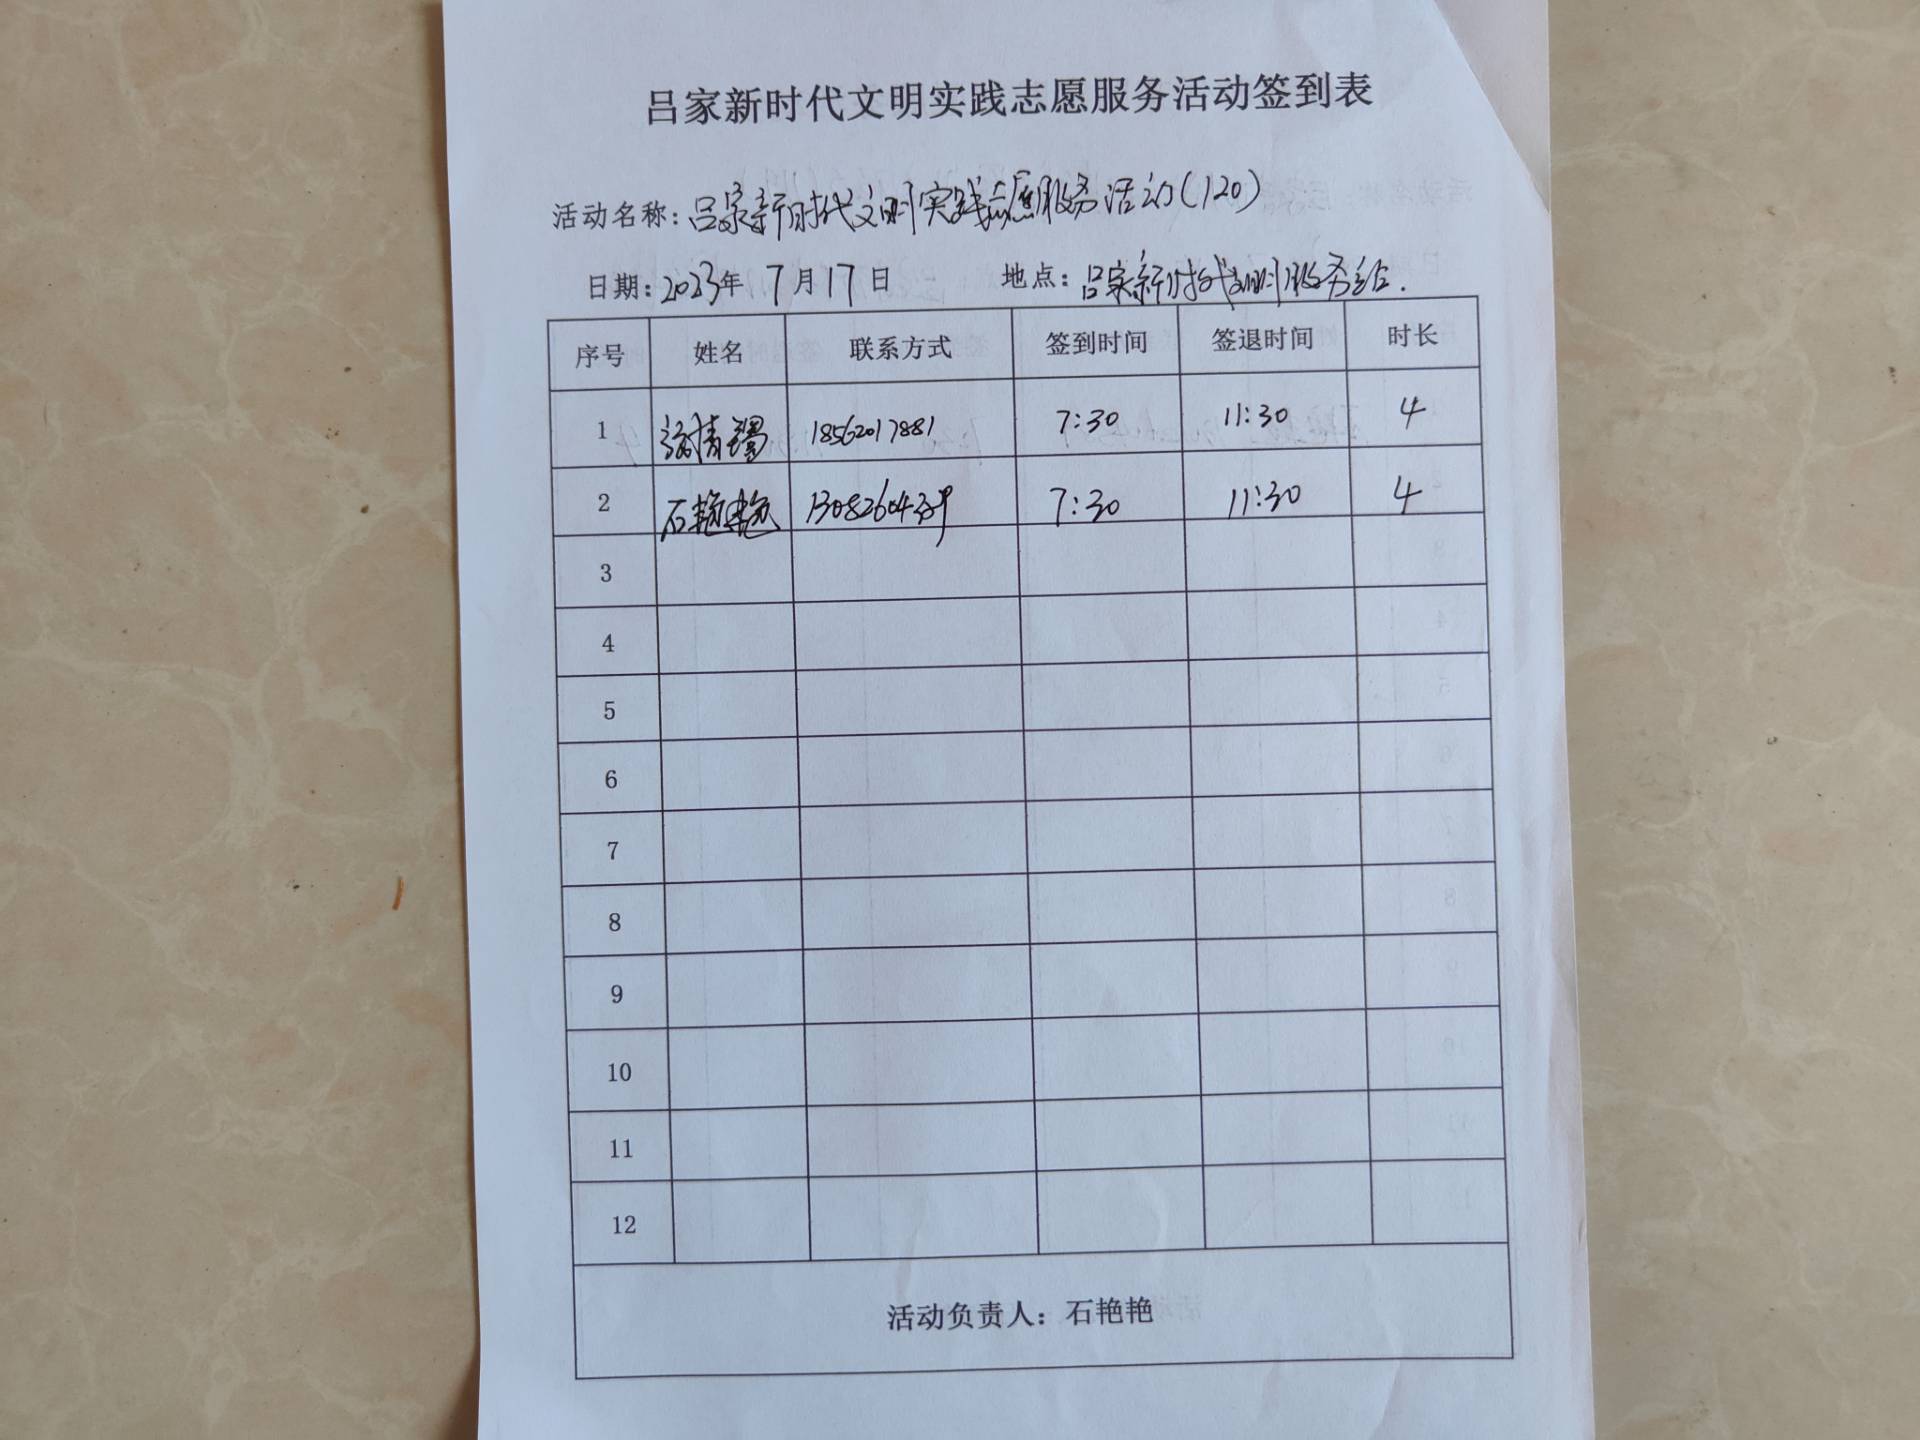 吕家新时代文明实践志愿服务活动签到表
活动名称:吕家新时代文明实践志愿服务活动(120)
日期:2023年 7月17日 地点:吕家新时代文明服务站.
序号 姓名 联系方式 签到时间 签退时间 时长
1 18562017881 7:30 11:30 4
2 石艳艳 7:30 11:30 4
3
4
5
6
7
8
9
10
11
12
活动负责人:石艳艳